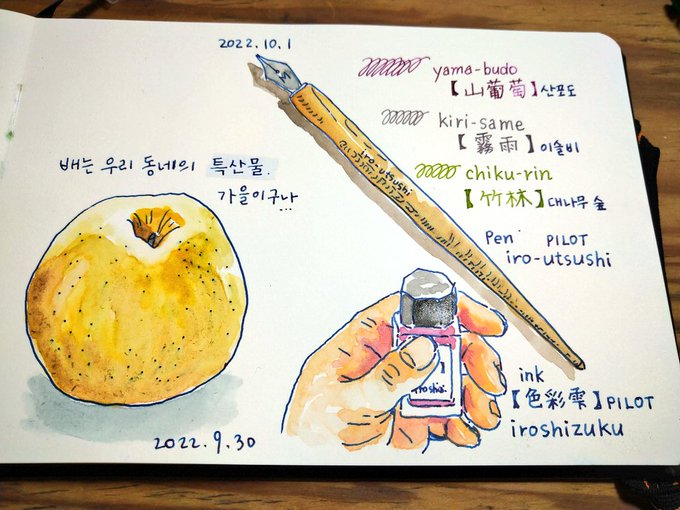 2022.10.1
yama-budo
【山葡萄】산포도
kiri-same
【霧雨】이슬비
chiku-rin
【竹林】대나무 숲
iro-utsushi
Pen PILOT
iro-utsushi
배는 우리 동네의 특산물.
가을이구나...
2022.9.30
iroshizu
ink
【色彩雫】PILOT
iroshizuku